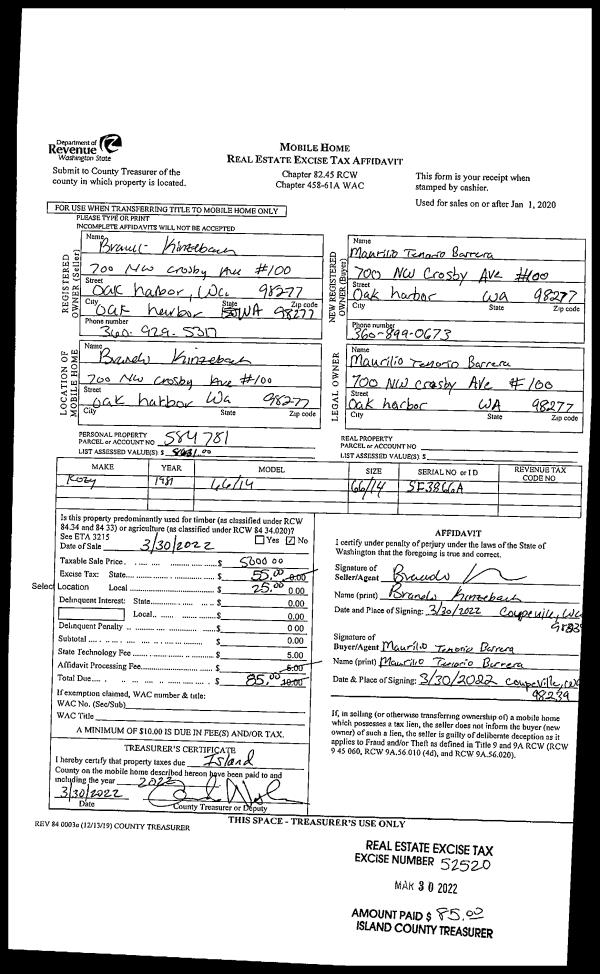 Department of
Revenue
Washington State
MOBILE HOME
REAL ESTATE EXCISE TAX AFFIDAVIT
Submit to County Treasurer of the
county in which property is located.
Chapter 82.45 RCW
Chapter 458-61A WAC
This form is your receipt when
stamped by cashier.
Used for sales on or after Jan 1, 2020
FOR USE WHEN TRANSFERRING TITLE TO MOBILE HOME ONLY
PLEASE TYPE OR PRINT
INCOMPLETE AFFIDAVITS WILL NOT BE ACCEPTED
REGISTERED
OWNER (Seller)
Name
Kinzebach
700 NW Crosby Ave #100
Street
Oak harbor, Wa 98277
City State Zip code
Oak harbor WA 98277
Phone number
360-929-5317
NEW REGISTERED
OWNER (Buyer)
Name
Maurilio Tenorio Barrera
700 NW Crosby Ave #100
Street
Oak harbor WA 98277
City State Zip code
Phone number
360-899-0673
LOCATION OF
MOBILE HOME
Name
Brands Kinzebach
700 NW Crosby Ave #100
Street
Oak harbor Wa 98277
City State Zip code
LEGAL OWNER
Name
Maurilio Tenorio Barrera
700 NW Crosby Ave #100
Street
Oak harbor WA 98277
City State Zip code
PERSONAL PROPERTY
PARCEL or ACCOUNT NO 584781
LIST ASSESSED VALUE(S) $
REAL PROPERTY
PARCEL or ACCOUNT NO
LIST ASSESSED VALUE(S) $
MAKE YEAR MODEL SIZE SERIAL NO or I D REVENUE TAX
CODE NO
Kozy 1981 66/14 66/14 SE3866A
Is this property predominantly used for timber (as classified under RCW
84.34 and 84 33) or agriculture (as classified under RCW 84 34.020)?
See ETA 3215 Yes ✓ No
Date of Sale 3/30/2022
Taxable Sale Price $ 5000 00
Excise Tax: State $ 55.00 0.00
Select Location Local $ 25.00 0.00
Delinquent Interest: State $ 0.00
Local $ 0.00
Delinquent Penalty $ 0 00
Subtotal $ 0.00
State Technology Fee $ 5.00
Affidavit Processing Fee $ 5.00
Total Due $ 85.00 10.00
If exemption claimed, WAC number & title:
WAC No. (Sec/Sub)
WAC Title
A MINIMUM OF $10.00 IS DUE IN FEE(S) AND/OR TAX.
TREASURER'S CERTIFICATE
I hereby certify that property taxes due Island
County on the mobile home described hereon have been paid to and
including the year 2022
3/30/2022
Date County Treasurer or Deputy
AFFIDAVIT
I certify under penalty of perjury under the laws of the State of
Washington that the foregoing is true and correct.
Signature of
Seller/Agent Brands
Name (print) Brands Kinzebach
Date and Place of Signing: 3/30/2022 Coupeville, Wa
98239
Signature of
Buyer/Agent Maurilio Tenorio Barrera
Name (print) Maurilio Tenorio Barrera
Date & Place of Signing: 3/30/2022 Coupeville, WA
98239
If, in selling (or otherwise transferring ownership of) a mobile home
which possesses a tax lien, the seller does not inform the buyer (new
owner) of such a lien, the seller is guilty of deliberate deception as it
applies to Fraud and/or Theft as defined in Title 9 and 9A RCW (RCW
9 45 060, RCW 9A.56 010 (4d), and RCW 9A.56.020).
REV 84 0003a (12/13/19) COUNTY TREASURER
THIS SPACE - TREASURER'S USE ONLY
REAL ESTATE EXCISE TAX
EXCISE NUMBER 52520
MAR 30 2022
AMOUNT PAID $ 85.00
ISLAND COUNTY TREASURER